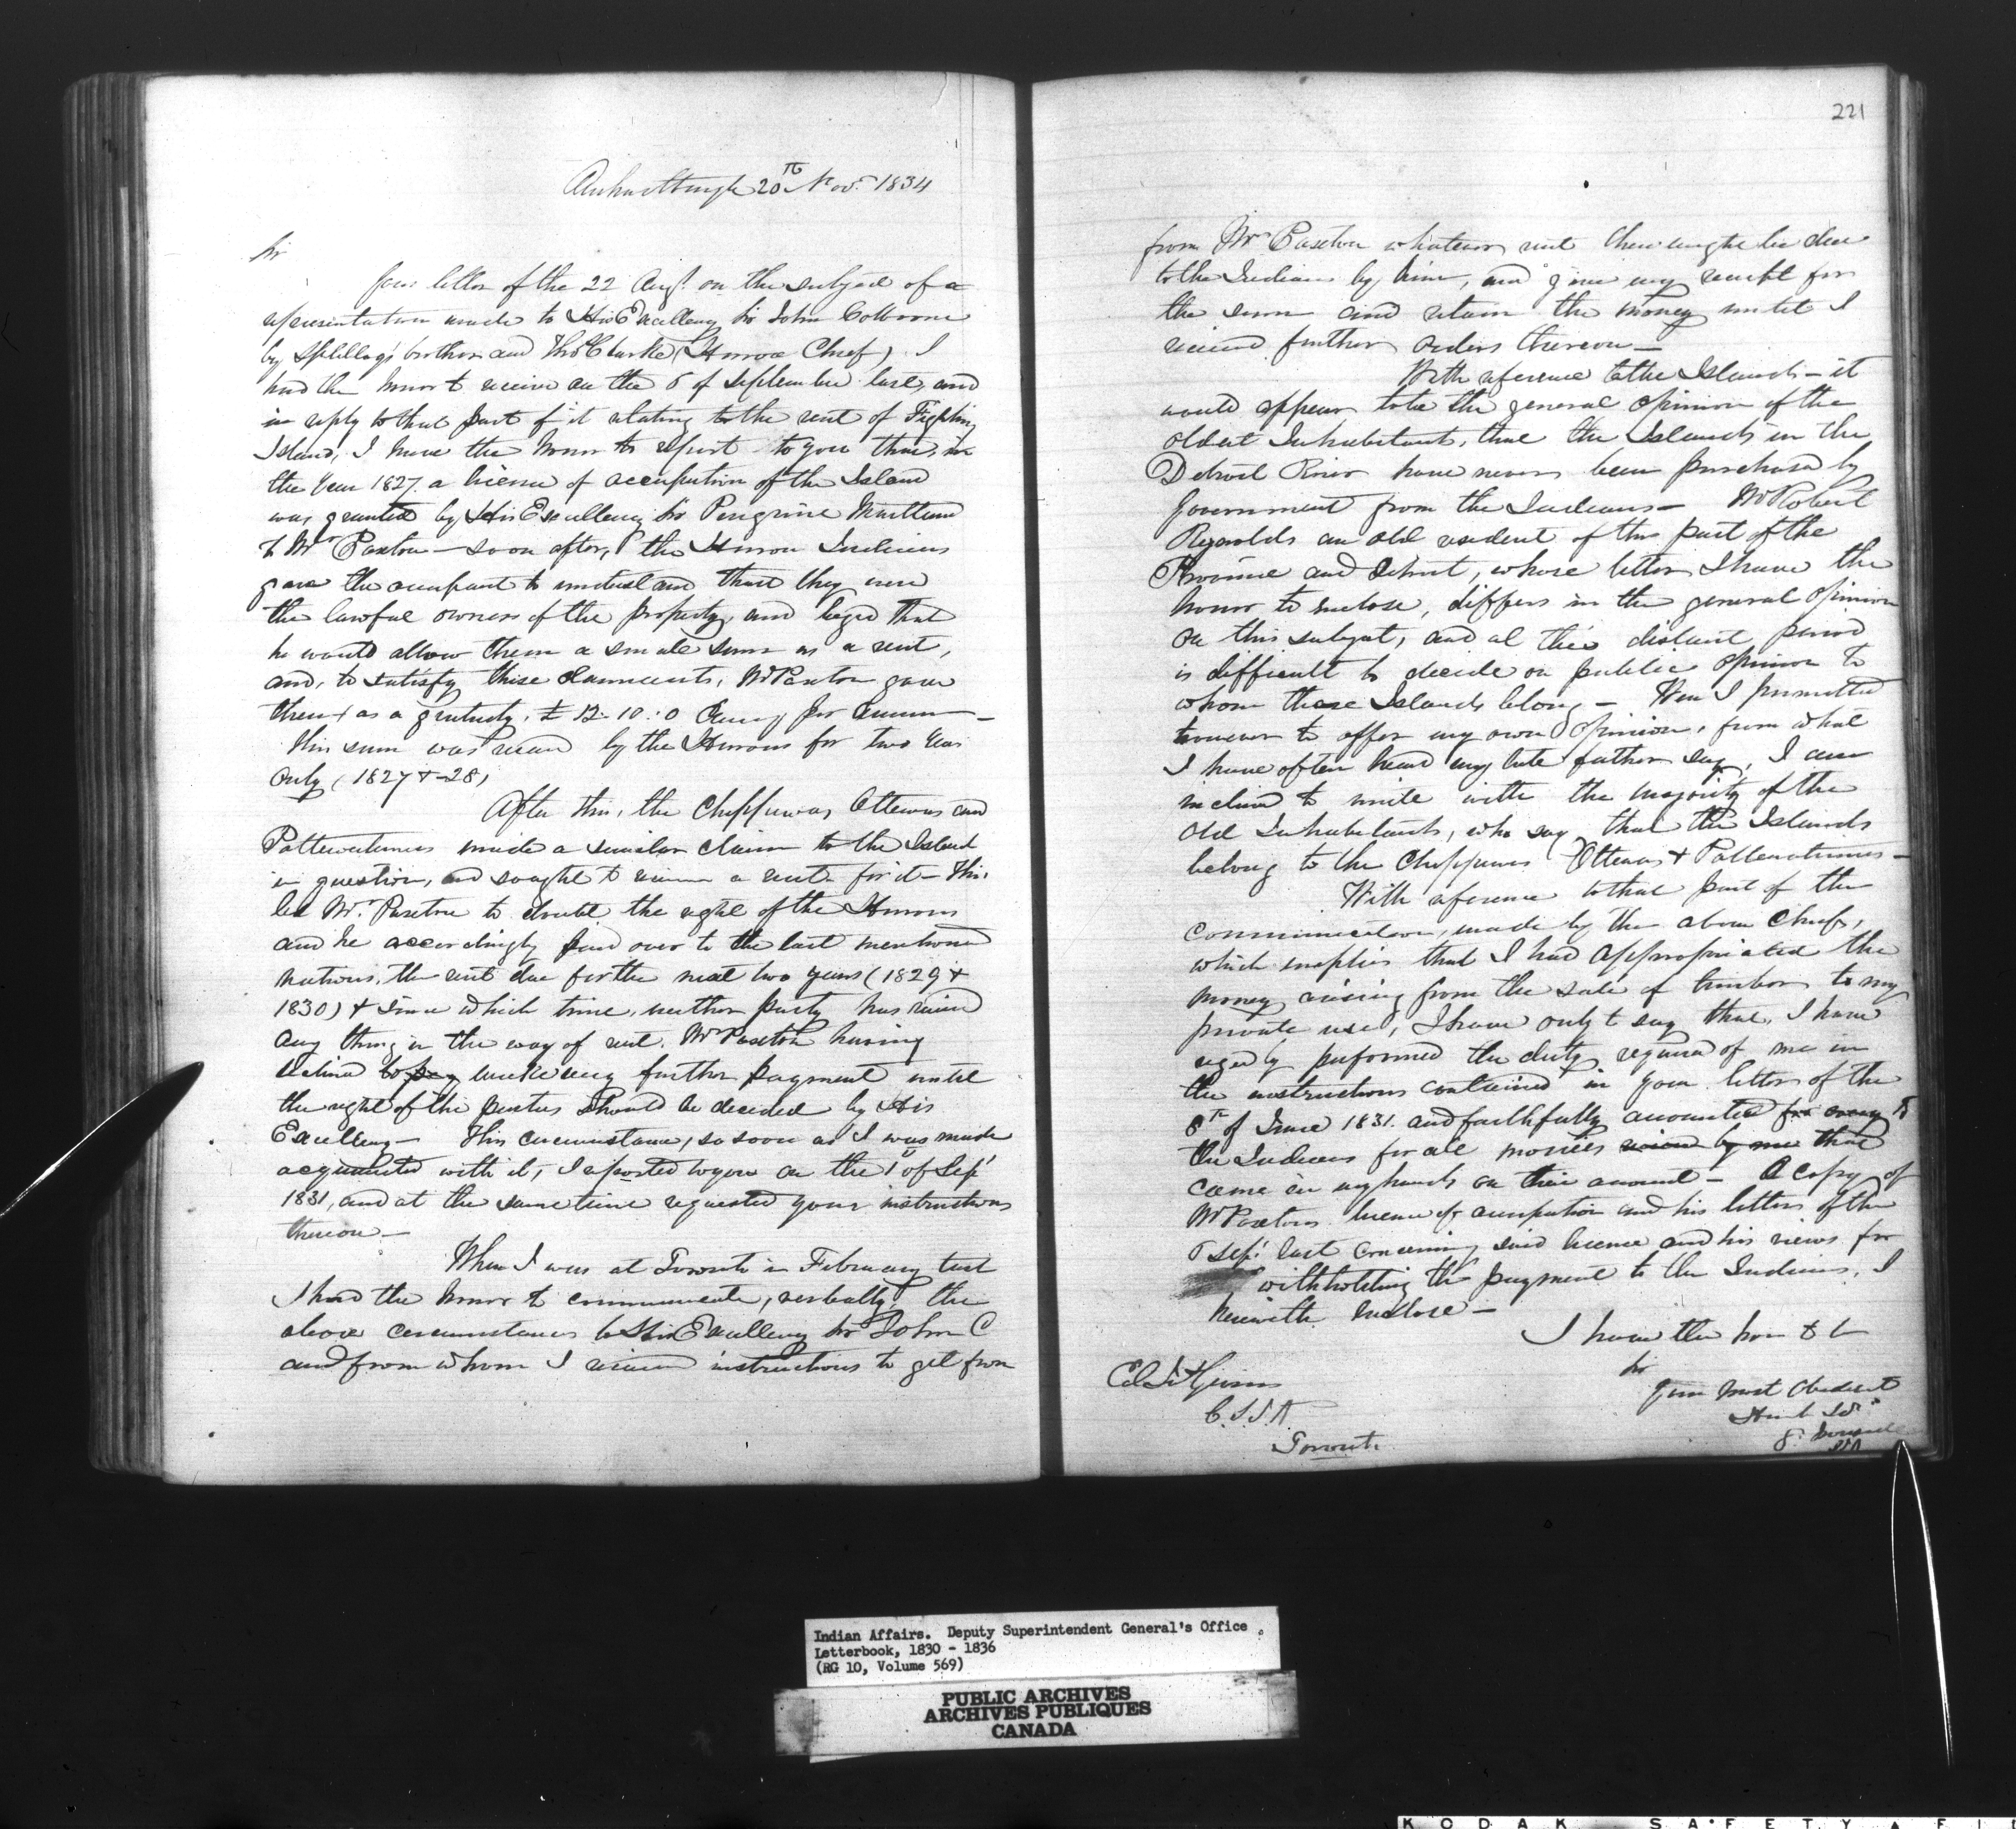 Amherstburgh 20th Nov.r 1834
Sir
Your letter of the 22 Aug.t on the subject of a
representation made to His Excellency Sir John Colborne
by Splitlog's brother and Tho.s Clarke (Huron Chief) I
had the honor to receive on the 6 of September last, and
in reply to that part of it relating to the rent of Fighting
Island, I have the honor to report to you that, in
the Year 1827 a license of occupation of the Island
was granted by His Excellency Sir Peregrine Maitland
to Mr Paxton – soon after, the Huron Indians
gave the occupant to understand that they were
the lawful owners of the property, and beged that
he would allow them a small sum as a rent,
and, to satisfy these claimants, Mr Paxton gave
them as a gratuity, £ 12. 10. 0 Curcy per annum –
this sum was received by the Hurons for two Years
only (1827 & 28)
After this, the Chippewas, Ottewas and
Pottewatemies made a similar claim to the Island
in question, and sought to receive a rent for it – This
led Mr Paxton to doubt the right of the Hurons
and he accordingly paid over to the last mentioned
nations, the rent due for the next two years (1829 &
1830) & since which time, neither party has received
any thing in the way of rent. Mr Paxton having
declined to pay make any further payment until
the right of the parties should be decided by His
Excellency – This circumstance, so soon as I was made
acquainted with it, I reported to you on the 1st of Sep.t
1831, and at the same time requested your instructions
thereon –
When I was at Toronto in February last
I had the honor to communicate, verbally, the
above circumstances to His Excellency Sir John C
and from whom I received instructions to get from
221
from Mr Paxton whatever rent there might be due
to the Indians by him, and give my receipt for
the sum and retain the money until I
received further orders thereon –
With reference to the Islands – it
would appear to be the general opinion of the
oldest Inhabitants, that the Islands in the
Detroit River have never been purchased by
Government from the Indians – Mr Robert
Reynolds an old resident of this part of the
Province and Detroit, whose letter I have the
honor to enclose, differs in the general opinion
on this subject, and at this distant period
is difficult to decide on public opinion to
whom these Islands belong – Were I permitted
however to offer my own opinion, from what
I have often heard my late father say, I am
inclined to unite with the majority of the
old Inhabitants, who say that the Islands
belong to the Chippewas Ottewas & Pottewatemies –
With reference to that part of the
communication, made by the above Chiefs,
which implies that I had appropriated the
money arising from the sale of timber to my
private use, I have only to say that, I have
rigedly performed the duty required of me in
the instructions contained in your letter of the
8th of June 1831. and faithfully accounted for every to
the Indians for all monies received by me that
came in my hands on their account – A copy of
Mr Paxtons license of occupation and his letter of the
6 Sep.t last concerning said license and his views for
withholding the payment to the Indians, I
herewith enclose –
I have the honr to be
Sir
Your Most Obedient
Humb Sv
Toronto
Indian Affairs. Deputy Superintendent General's Office.
Letterbook, 1830 - 1836
(RG 10, Volume 569)
PUBLIC ARCHIVES
ARCHIVES PUBLIQUES
CANADA
KODAK SAFETY FI